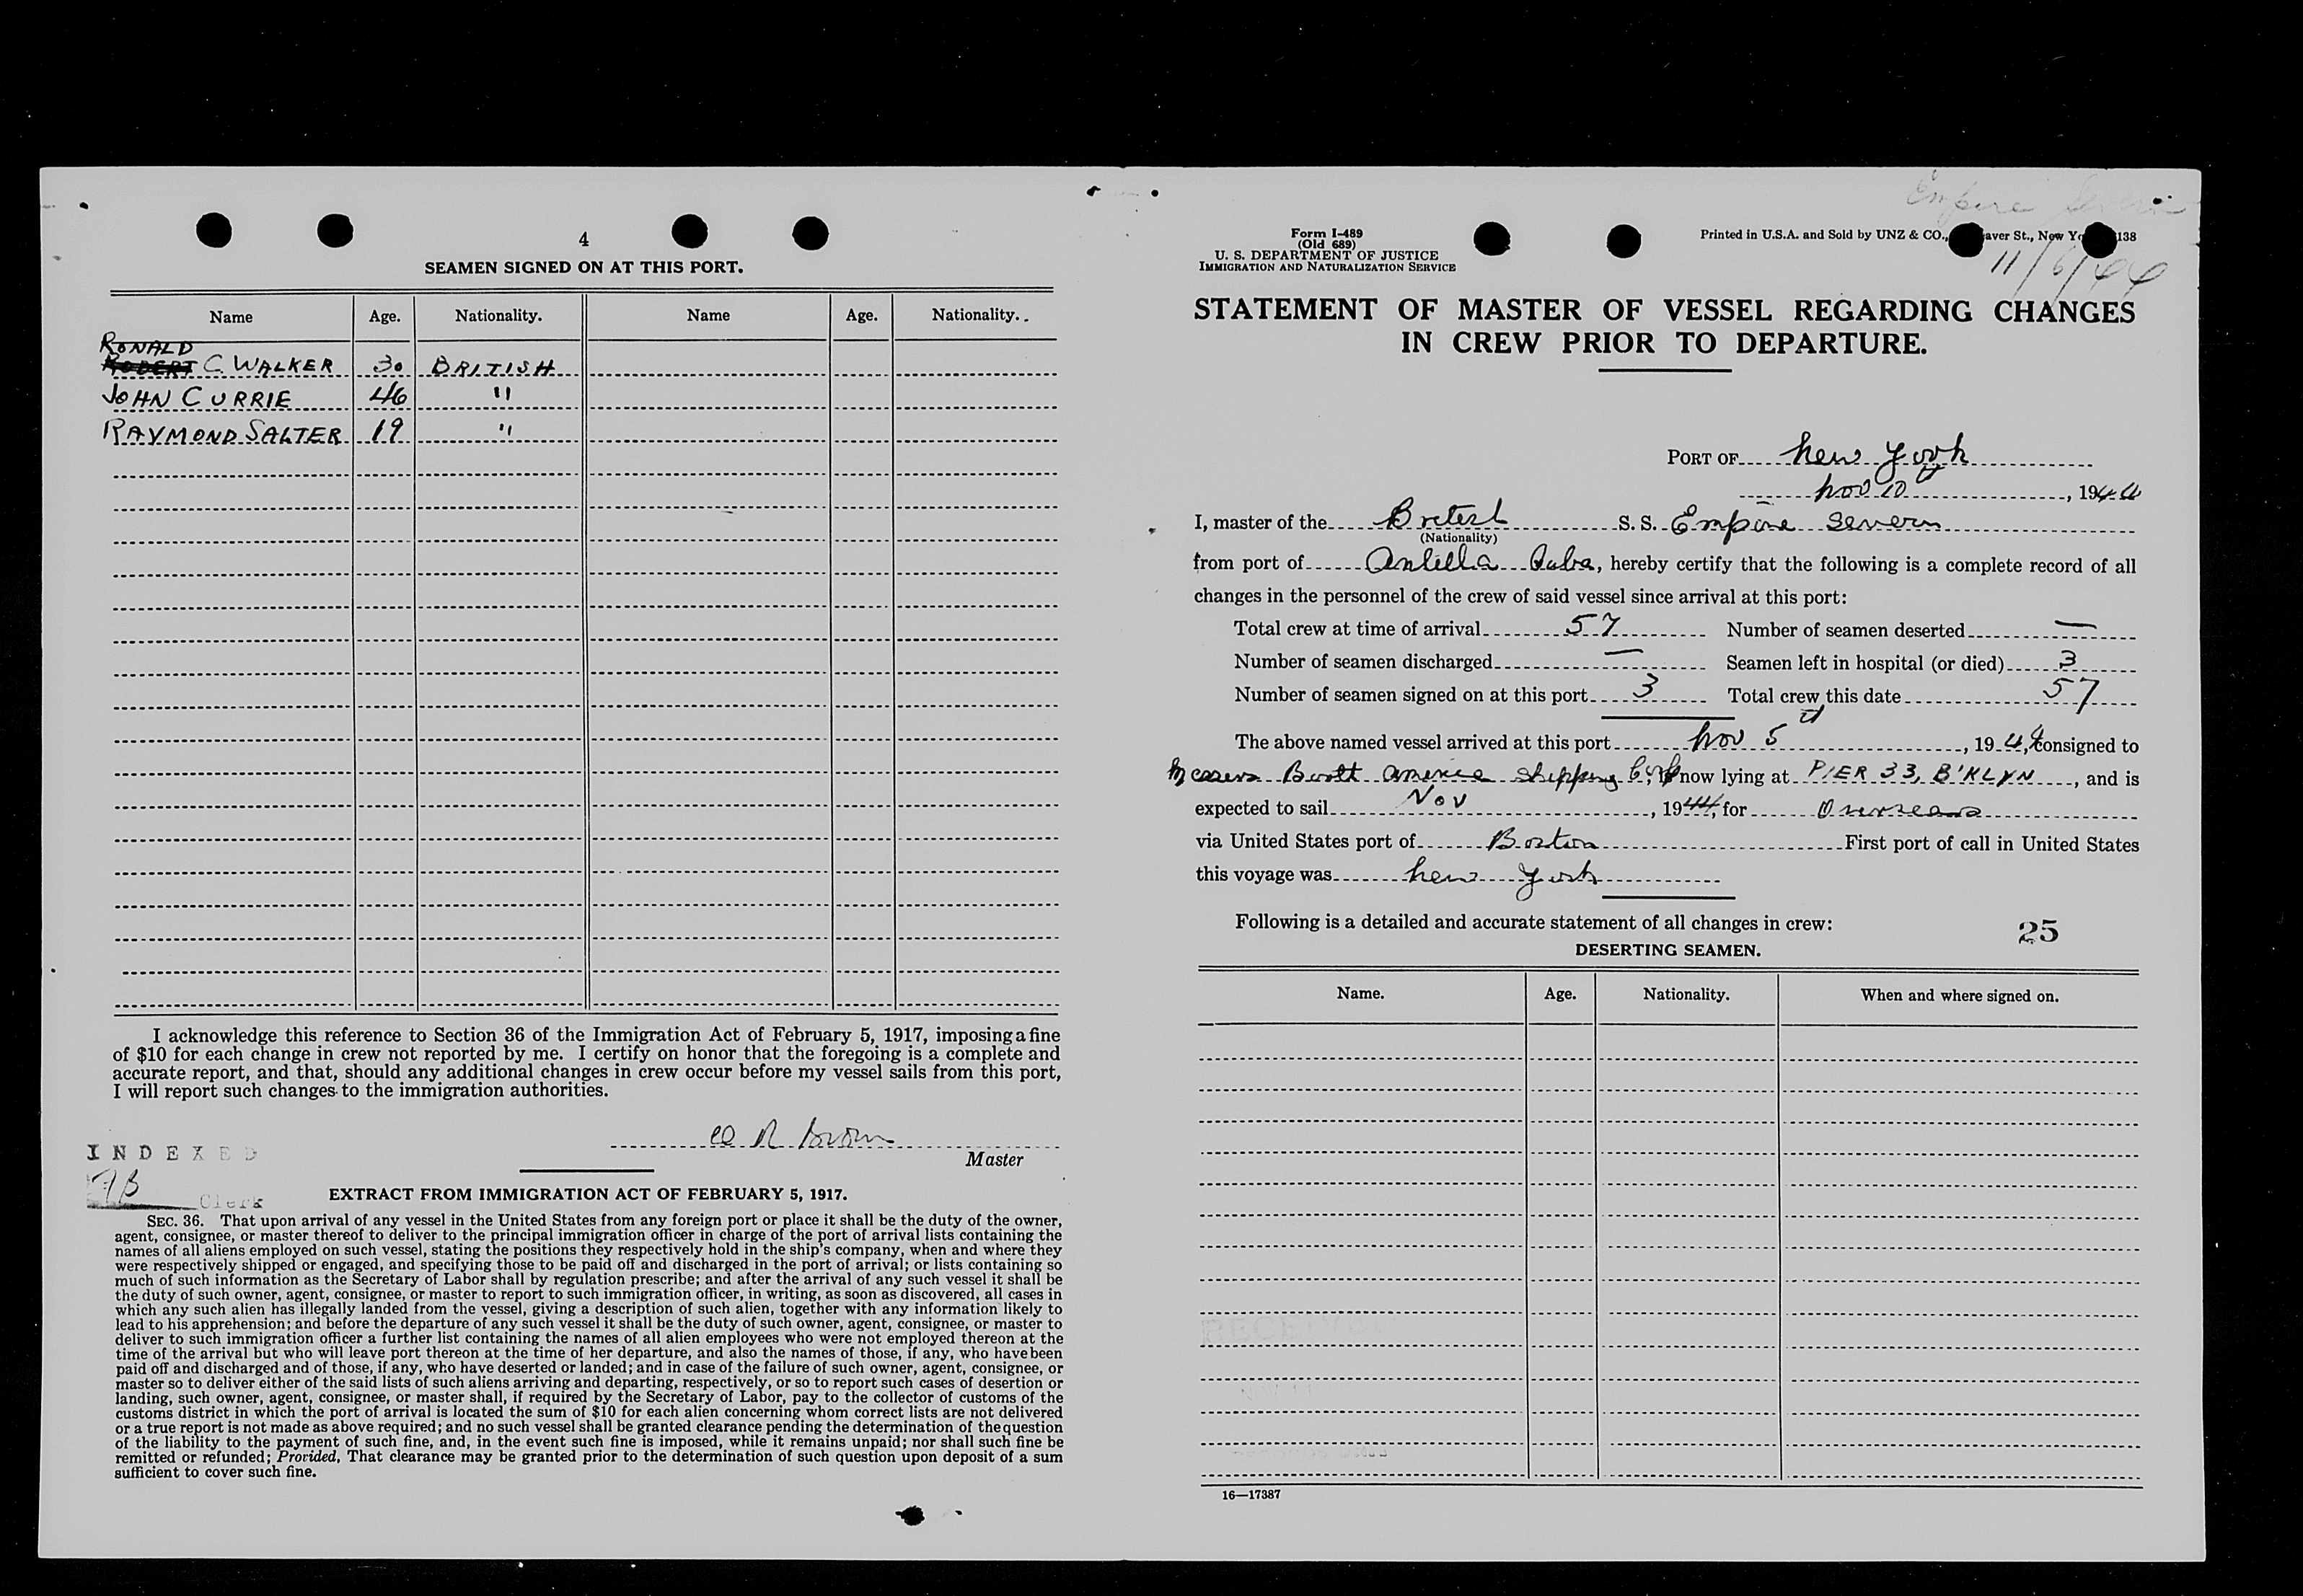 4
SEAMEN SIGNED ON AT THIS PORT.
Name Age. Nationality. Name Age. Nationality.
RONALD
ROBERT C. WALKER 30 BRITISH
JOHN CURRIE 46 "
RAYMOND SALTER 19 "
I acknowledge this reference to Section 36 of the Immigration Act of February 5, 1917, imposing a fine
of $10 for each change in crew not reported by me. I certify on honor that the foregoing is a complete and
accurate report, and that, should any additional changes in crew occur before my vessel sails from this port,
I will report such changes to the immigration authorities.
Master
INDEXED
Clerk
EXTRACT FROM IMMIGRATION ACT OF FEBRUARY 5, 1917.
SEC. 36. That upon arrival of any vessel in the United States from any foreign port or place it shall be the duty of the owner,
agent, consignee, or master thereof to deliver to the principal immigration officer in charge of the port of arrival lists containing the
names of all aliens employed on such vessel, stating the positions they respectively hold in the ship's company, when and where they
were respectively shipped or engaged, and specifying those to be paid off and discharged in the port of arrival; or lists containing so
much of such information as the Secretary of Labor shall by regulation prescribe; and after the arrival of any such vessel it shall be
the duty of such owner, agent, consignee, or master to report to such immigration officer, in writing, as soon as discovered, all cases in
which any such alien has illegally landed from the vessel, giving a description of such alien, together with any information likely to
lead to his apprehension; and before the departure of any such vessel it shall be the duty of such owner, agent, consignee, or master to
deliver to such immigration officer a further list containing the names of all alien employees who were not employed thereon at the
time of the arrival but who will leave port thereon at the time of her departure, and also the names of those, if any, who have been
paid off and discharged and of those, if any, who have deserted or landed; and in case of the failure of such owner, agent, consignee, or
master so to deliver either of the said lists of such aliens arriving and departing, respectively, or so to report such cases of desertion or
landing, such owner, agent, consignee, or master shall, if required by the Secretary of Labor, pay to the collector of customs of the
customs district in which the port of arrival is located the sum of $10 for each alien concerning whom correct lists are not delivered
or a true report is not made as above required; and no such vessel shall be granted clearance pending the determination of the question
of the liability to the payment of such fine, and, in the event such fine is imposed, while it remains unpaid; nor shall such fine be
remitted or refunded; Provided, That clearance may be granted prior to the determination of such question upon deposit of a sum
sufficient to cover such fine.
Empire Severn
Form I-489
(Old 689)
U. S. DEPARTMENT OF JUSTICE
IMMIGRATION AND NATURALIZATION SERVICE
Printed in U.S.A. and Sold by UNZ & CO., aver St., New Yo 138
11/6/44
STATEMENT OF MASTER OF VESSEL REGARDING CHANGES
IN CREW PRIOR TO DEPARTURE.
PORT OF New York
Nov 10th, 1944
I, master of the British S. S. Empire Severn
(Nationality)
from port of Antilla Cuba, hereby certify that the following is a complete record of all
changes in the personnel of the crew of said vessel since arrival at this port:
Total crew at time of arrival 57 Number of seamen deserted —
Number of seamen discharged — Seamen left in hospital (or died) 3
Number of seamen signed on at this port 3 Total crew this date 57
The above named vessel arrived at this port Nov 5th, 1944, consigned to
Messrs Booth America Shipping Corp, is now lying at PIER 33, B'KLYN, and is
expected to sail Nov, 1944, for Overseas
via United States port of Boston First port of call in United States
this voyage was New York
Following is a detailed and accurate statement of all changes in crew:
25
DESERTING SEAMEN.
Name. Age. Nationality. When and where signed on.
RECEIVED
16—17387